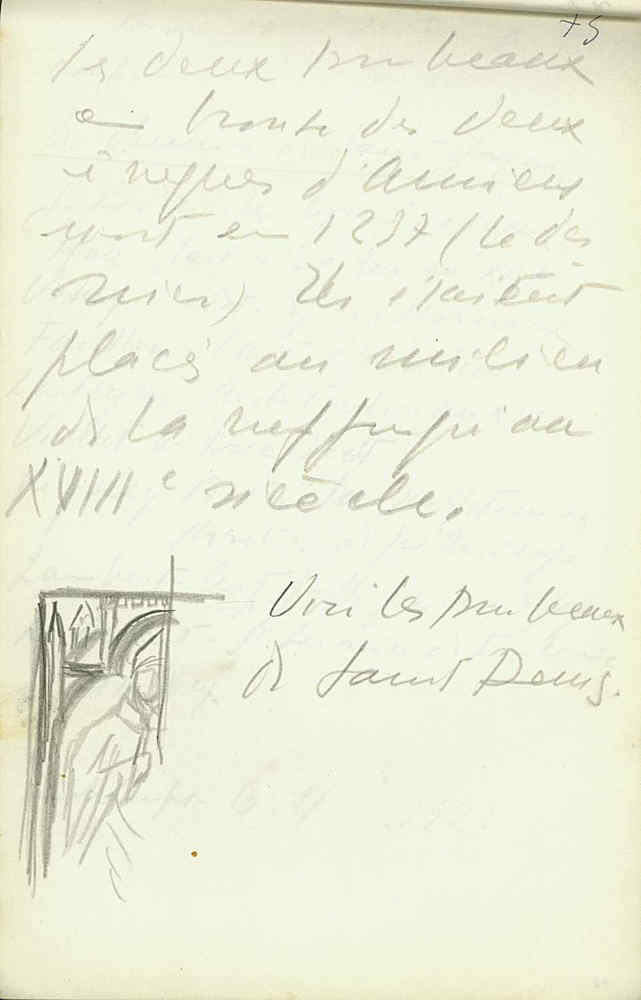 75
les deux tombeaux
en bronze des deux
évêques d'Amiens
mort en 1237 (le der
nier) Ils étaient
placés au milieu
de la nef jusqu'au
XVIIIe siècle.
Voir les tombeaux
de Saint Denis.